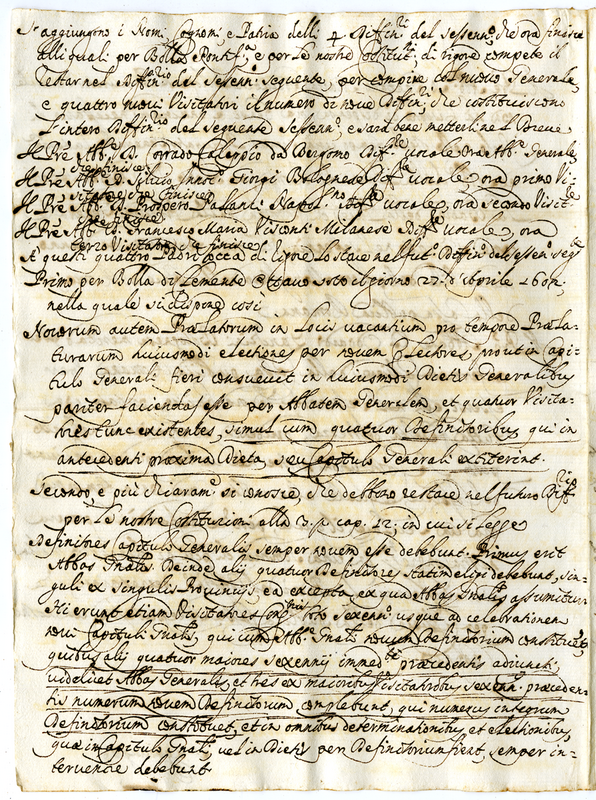 S'aggiungono i Nomi, Cognomi, e Patria delli 4 Diffin.ri del sessenn.o che ora finisce
alli quali per Bolla Pontif.a e per le nostre Costituz.i di rigore compete il
restar nel Diffin.rio del sessenn.o seguente, per compire col nuovo Generale,
e quattro nuovi Visitatori il numero di nove Diffin.ri che costituiscono
l'intero Diffin.rio del seguente sessenn.o, e sarà bene metterli nel Breve
Il Pre Abb.e D. Corrado Caleppio da Bergomo Diff.re vocale ora Abb.e Generale
che finisce
Il Pre Abb.e D. Innoc.o Giorgi Bolognese Diff.re vocale, ora primo Vi-
sitatore che finisce
Il Pre Abb.e D. Prospero Napol.no Diff.re vocale, ora secondo Visit.re
che finisce
Il Pre Abb.e D. Francesco Maria Visconti Milanese Diff.re vocale, ora
terzo Visitatore che finisce
A questi quattro Padri tocca di rigore lo stare nel fut.o Diffin.o del sessen.o seg.te
Primo per Bolla di Clemente Ottavo sotto il giorno 27. d'Aprile
nella quale si dispone così
Novorum autem Prælatorum in locis vacantium pro tempore Præla-
turarum huiusmodi electiones per novem Electores, prout in Capi-
tulo Generali fieri consuevit in huiusmodi Dietis Generalibus
pariter faciendas esse per Abbatem Generalem, et quatuor Visita-
tores tunc existentes, simul cum quatuor Definitoribus, qui in
antecedenti proxima Dieta, seu Capitulo Generali extiterint.
Secondo, e più chiaram.e si conosce, che debbono restare nel futuro Diff.rio
per le nostre Costituzioni alla 3. p. cap. 12; in cui si legge
Definitores Capituli Generalis semper novem esse debebunt. Primus erit
Abbas Gnalis. Deinde alij quatuor Definitores statim eligi debebunt, sin-
guli ex singulis Provincijs, ea excepta, ex qua Abbas Gnalis assumitur.
Hi erunt etiam Visitatores toto sexenn.o usque ad celebrationem
novi Capituli Gnalis, qui cum Abb.e Gnali novum Definitorium constituent,
quibus alij quatuor maiores sexennij immed.te præcedentis adiuncti,
videlicet Abbas Generalis, et tres ex maioribus Visitatoribus sexenn. præceden-
tis numerum novem Definitorum complebunt, qui numerus integrum
Definitorium constituet, et in omnibus determinationibus, et electionibus,
quæ in Capitulo Gnali, vel in Dietis per Definitorium fient, semper in-
tervenire debebunt